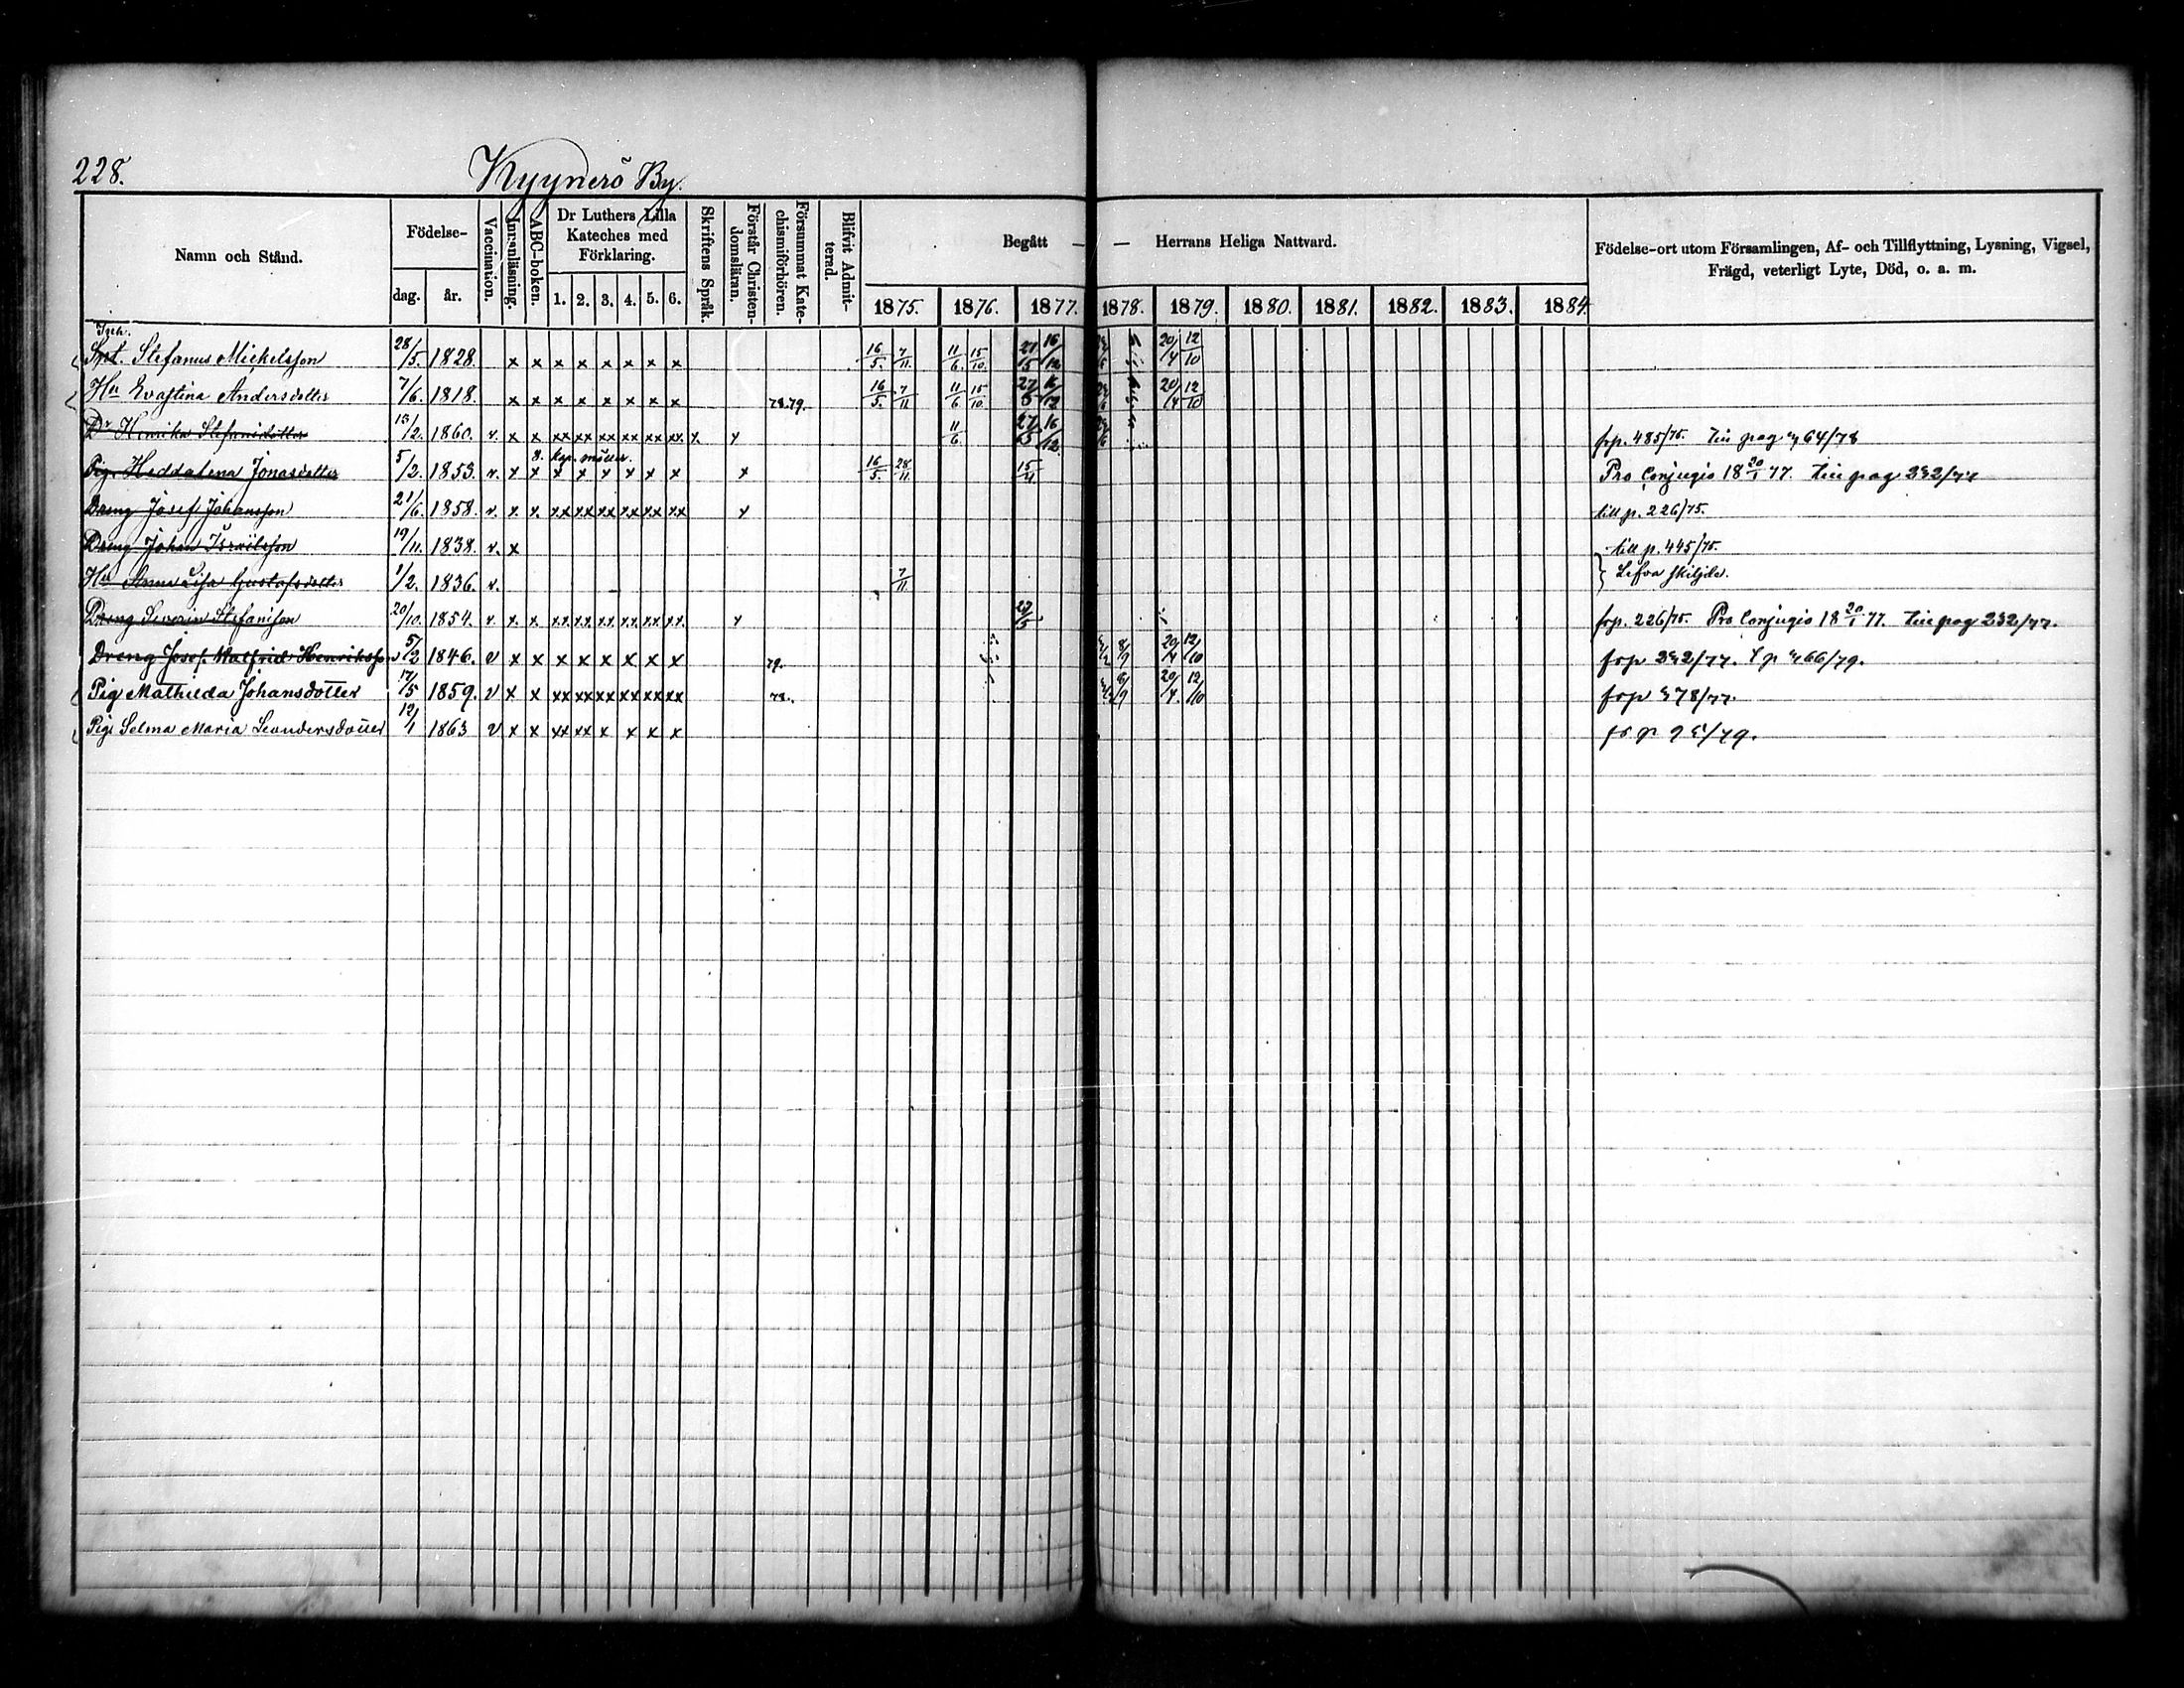 228.
Kyynerö By.
Namn och Stånd.
Födelse-
dag.
år.
Vaccination.
Innanläsning.
ABC-boken.
Dr Luthers Lilla Kateches med Förklaring.
1. 2. 3. 4. 5. 6.
Skriftens Språk.
Förstår Christendomsläran.
Försummat Katechismiförhören.
Blifvit Admitterad.
Begått — — Herrans Heliga Nattvard.
1875. 1876. 1877. 1878. 1879. 1880. 1881. 1882. 1883. 1884.
Födelse-ort utom Församlingen, Af- och Tillflyttning, Lysning, Vigsel,
Frägd, veterligt Lyte, Död, o. a. m.
Stefanus Mickelsson 28/5. 1828. x x x x x x x x 16/5. 7/11. 11/6. 15/10. 20/4 12/10
Hu Evastina Andersdotter 7/6. 1818. x x x x x x x x 78.79. 16/5. 7/11 11/6. 15/10. 20/4 12/10
Dr Henrika Stefanidotter 13/2. 1860. v. x x xx xx xx xx xx xx x x 11/6. 27/5 16/12 frp. 485/75.
Pig. Heddalena Jonasdotter 5/2. 1853. v. x x x x x x x x x 16/5. 28/11. Pro Conjugio 18 20/1 77. 
Dreng Josef Johansson 21/6. 1858. v. x x xx xx xx xx xx xx x till p. 226/75.
Dreng Johan Israelsson 19/11. 1838. v. x till p. 445/75.
Hu Anna Lisa Gustafsdotter 1/2. 1836. v. 7/11 Lefva skiljde.
Dreng Severin Stefanison 20/10. 1854. v. x x xx xx xx xx xx xx x 27/5 frp. 226/75. Pro Conjugio 18 20/1 77. 232/77.
Dreng Josef Walfrid Henriksson 5/2 1846. v x x x x x x x x 79. 20/4 12/10
Pig Mathilda Johansdotter 17/5 1859. v x x xx xx xx xx xx xx 78. 20/4. 12/10
Pig Selma Maria Leandersdotter 12/1 1863 v x x xx xx x x x x